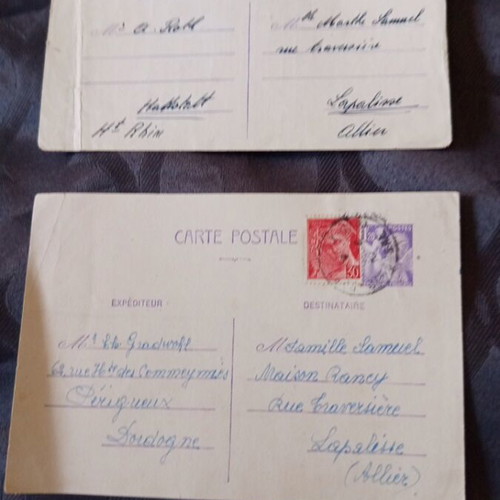 Mr A. Roth
Hattstatt
Ht Rhin
Mlle Marthe Samuel
rue traversière
Lapalisse
Allier
CARTE POSTALE
30
POSTES
EXPÉDITEUR
62, rue
des
Périgueux
Dordogne
DESTINATAIRE
Mr famille Samuel
Maison Rancy
Rue Traversière
Lapalisse
(Allier)